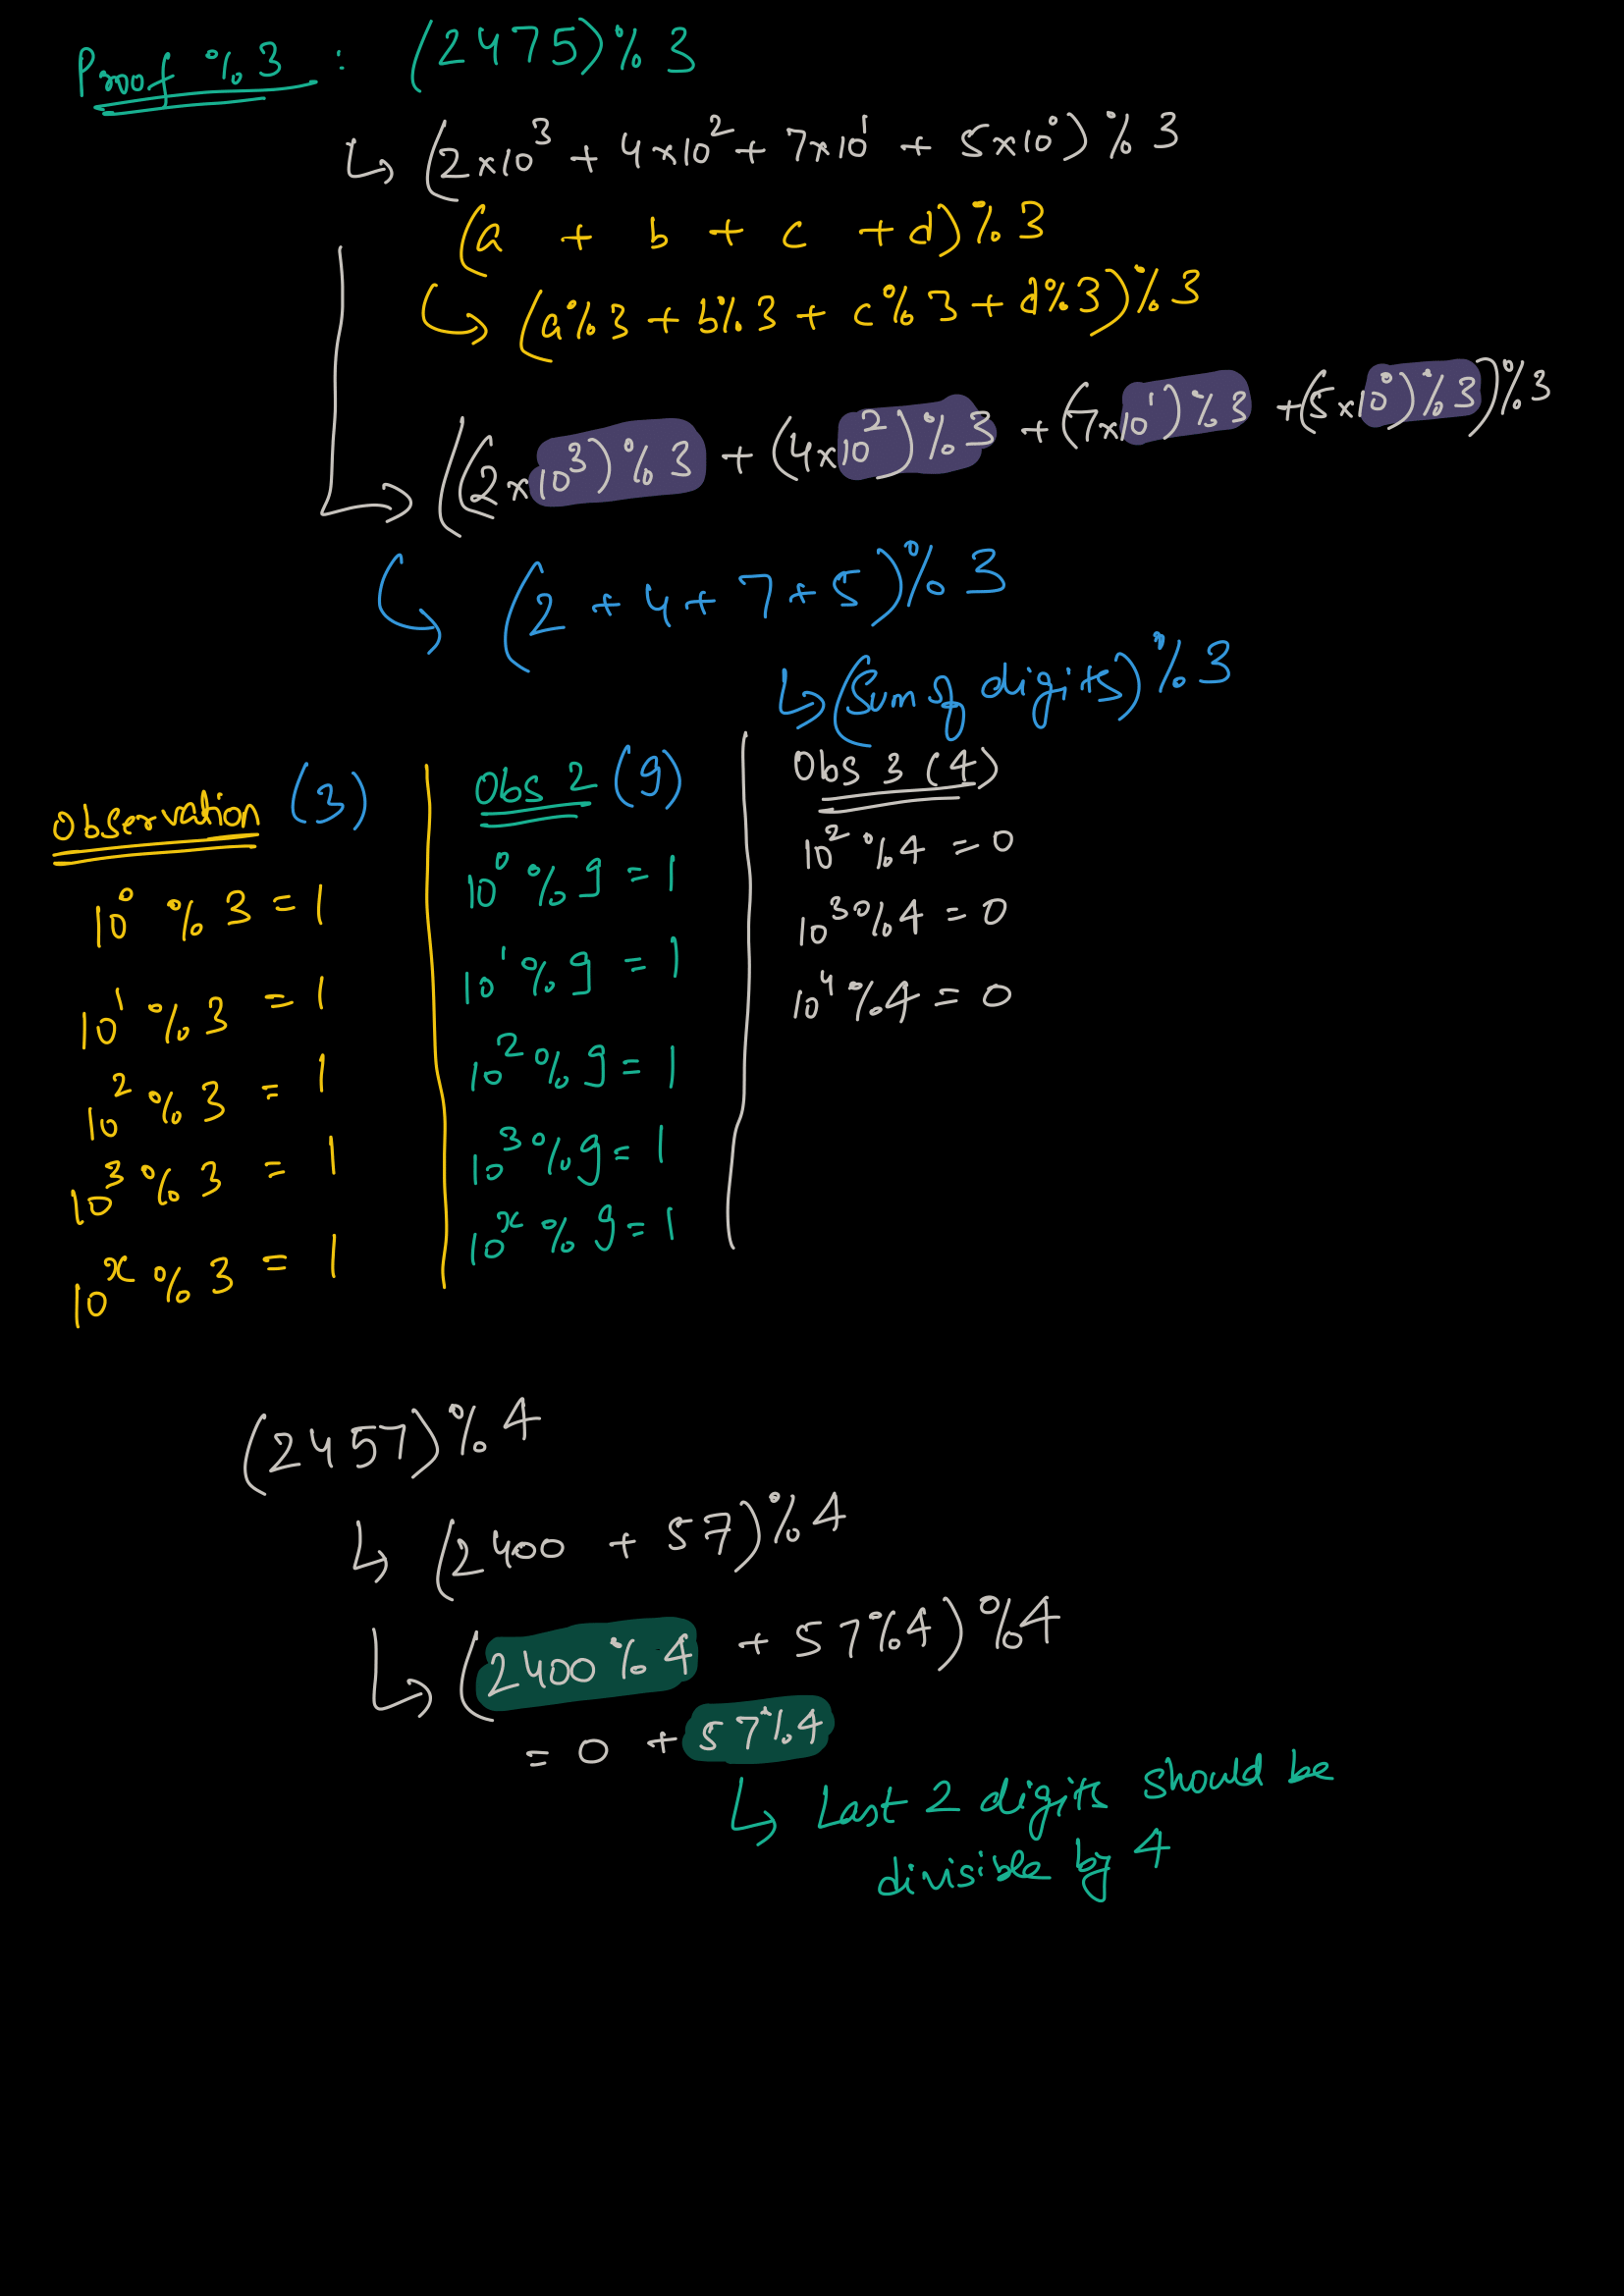 Proof % 3 : (2475) % 3
↳ (2×10³ + 4×10² + 7×10¹ + 5×10⁰) % 3
(a + b + c + d) % 3
↳ (a%3 + b%3 + c%3 + d%3) % 3
↳ ((2×10³)%3 + (4×10²)%3 + (7×10¹)%3 + (5×10⁰)%3)%3
↳ (2 + 4 + 7 + 5) % 3
↳ (Sum of digits) % 3
Observation (3)
10⁰ % 3 = 1
10¹ % 3 = 1
10² % 3 = 1
10³ % 3 = 1
10ˣ % 3 = 1
Obs 2 (9)
10⁰ % 9 = 1
10¹ % 9 = 1
10² % 9 = 1
10³ % 9 = 1
10ˣ % 9 = 1
Obs 3 (4)
10² % 4 = 0
10³ % 4 = 0
10⁴ % 4 = 0
(2457) % 4
↳ (2400 + 57) % 4
↳ (2400 % 4 + 57 % 4) % 4
= 0 + 57 % 4
↳ Last 2 digits should be
divisible by 4